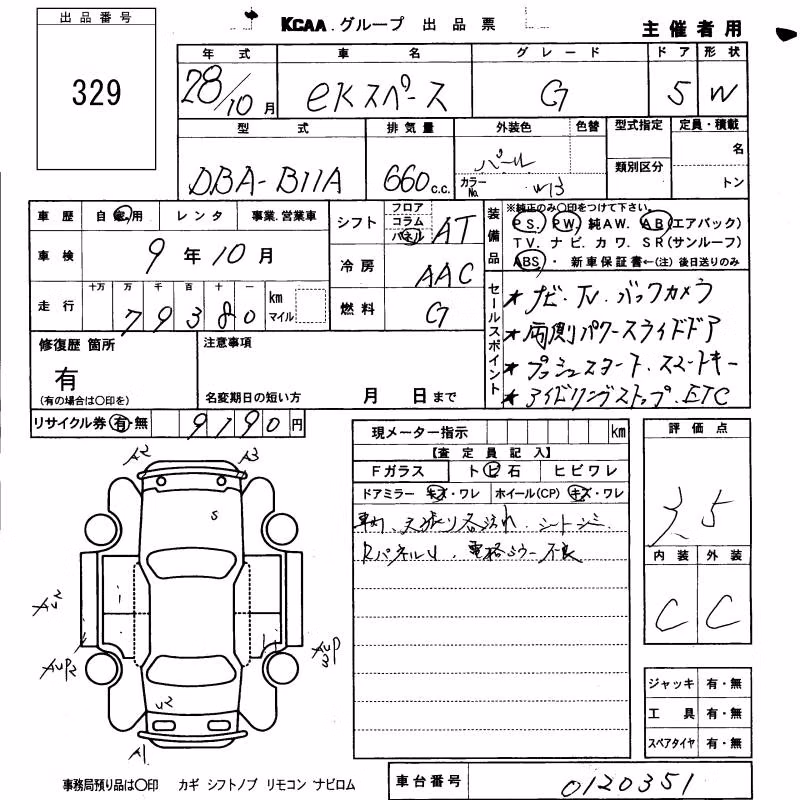 出品番号
329
KCAA.グループ 出品票
主催者用
年式 車名 グレード ドア 形状
28/10月 eKスペース G 5 W
型式 排気量 外装色 色替 型式指定 定員・積載
DBA-B11A 660c.c. パール
カラーNo. W13
名
類別区分
トン
車歴 自家用 レンタ 事業.営業車
シフト フロア コラム パネル AT
装備品
※純正のみ〇印をつけて下さい。
P S. P W. 純A W. A B (エアバック)
T V. ナビ. カワ. S R (サンルーフ)
ABS・ 新車保証書←(注) 後日送りのみ
車検 9年10月
冷房 AAC
走行 十万 万 千 百 十 一
79380 km マイル
燃料 G
セールスポイント
★ナビ・TV.バックカメラ
★両側パワースライドドア
★プッシュスタート.スマートキー
★アイドリングストップ.ETC
修復歴 箇所
有
(有の場合は〇印を)
注意事項
名変期日の短い方 月 日まで
リサイクル券 有・無 9190円
現メーター指示 km
【査定員記入】
Fガラス トビ石 ヒビワレ
ドアミラー キズ・ワレ ホイール(CP) キズ・ワレ
電格ミラー不良
評価点
5
内装 外装
C C
ジャッキ 有・無
工具 有・無
スペアタイヤ 有・無
A2 A3
S
U2
A1
事務局預り品は〇印 カギ シフトノブ リモコン ナビロム
車台番号 0120351